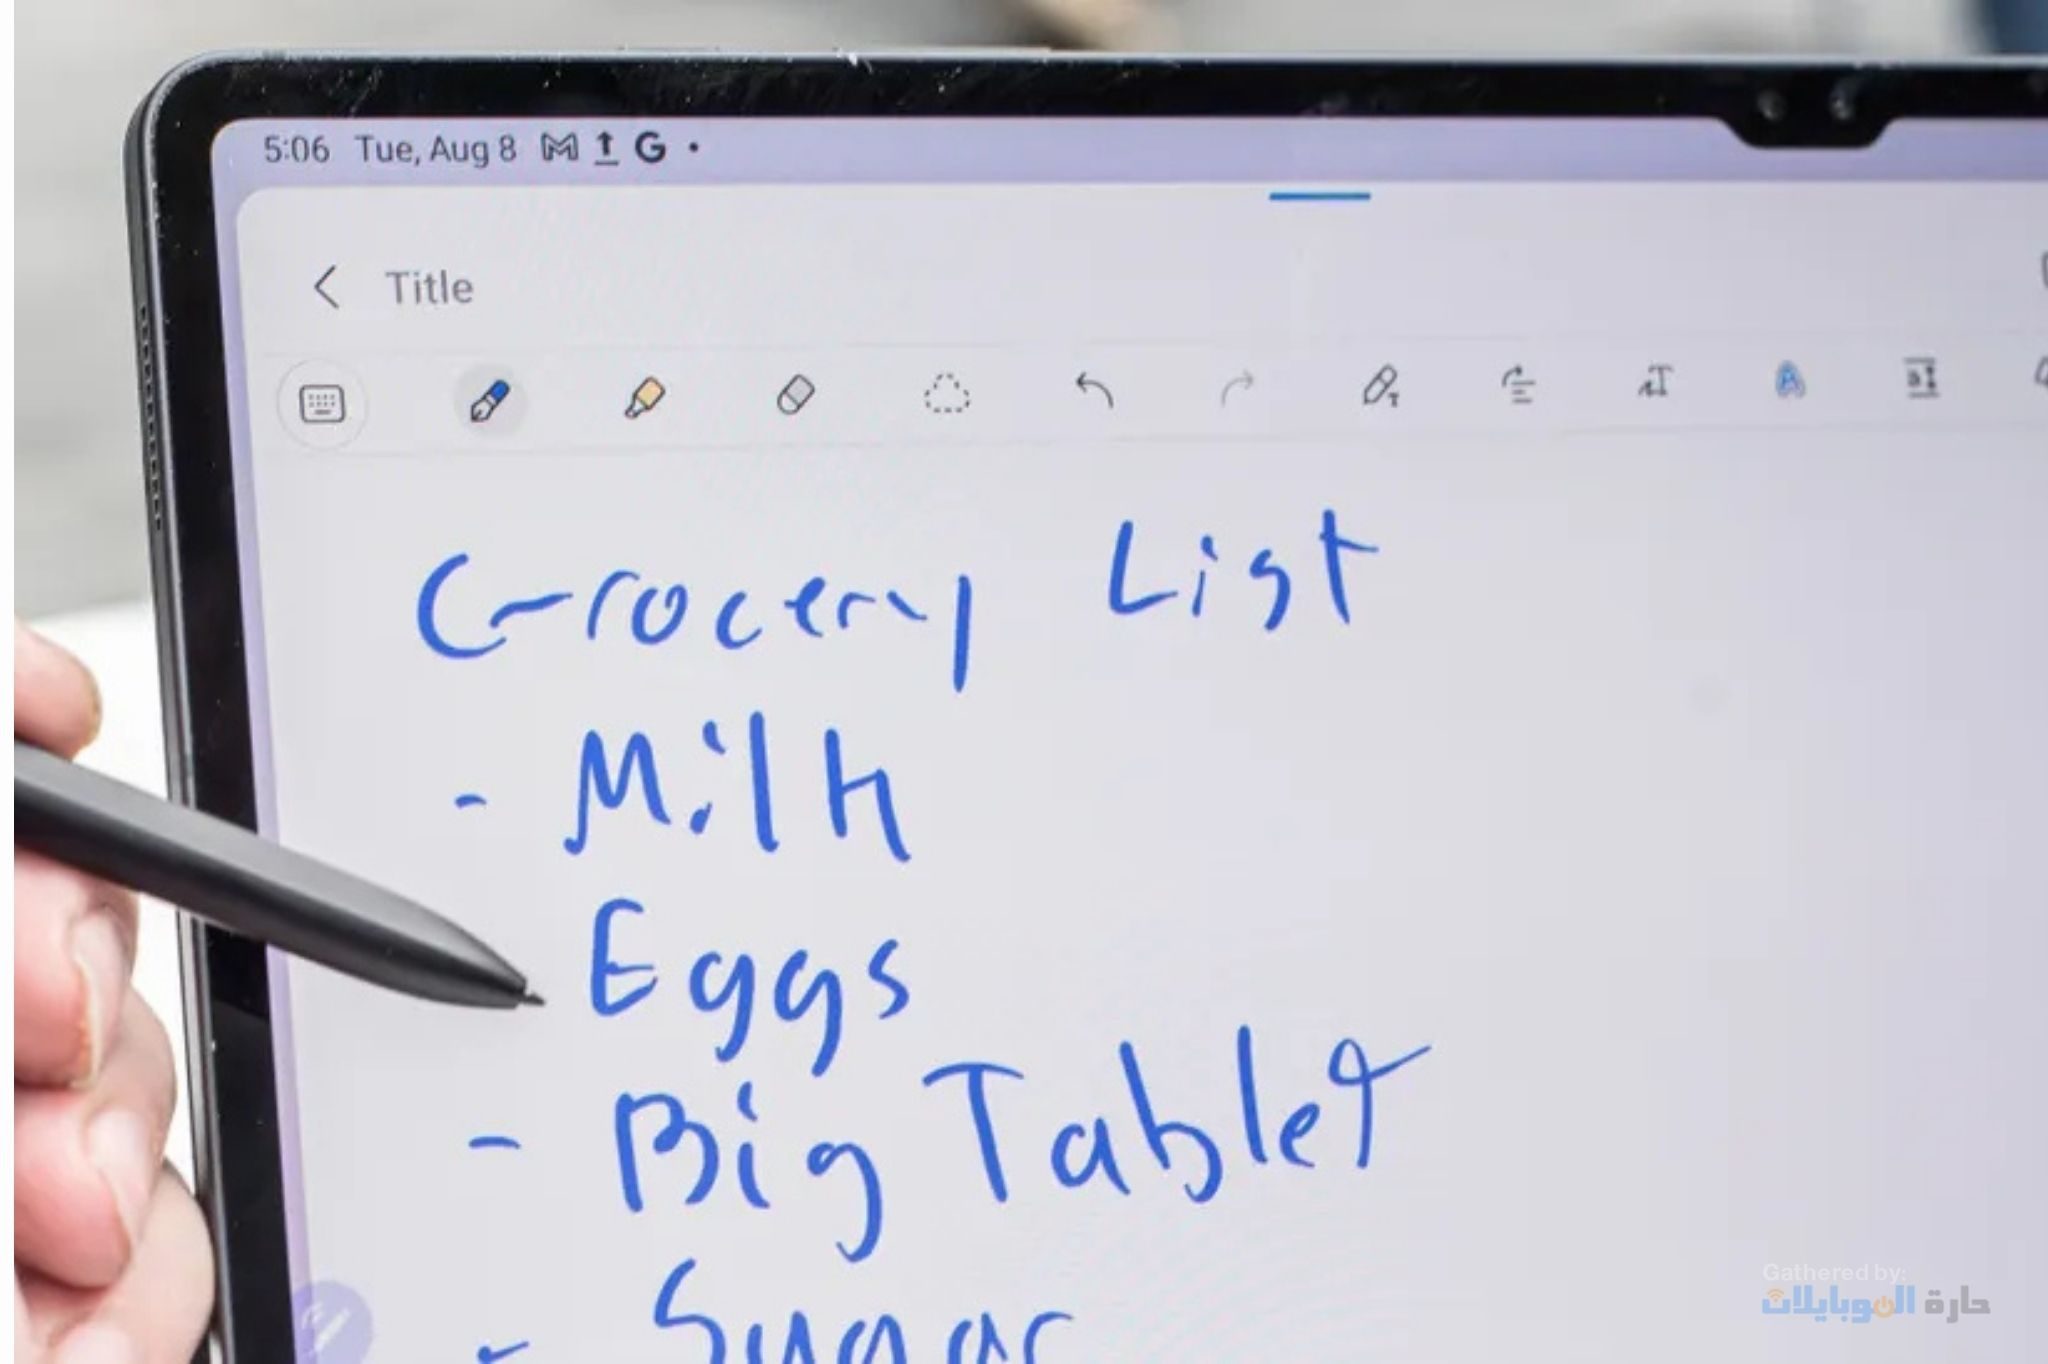 5:06 Tue, Aug 8
Title
Grocery List
- Milk
Eggs
- Big Tablet
- Sugar
Gathered by:
حارة الموبايلات